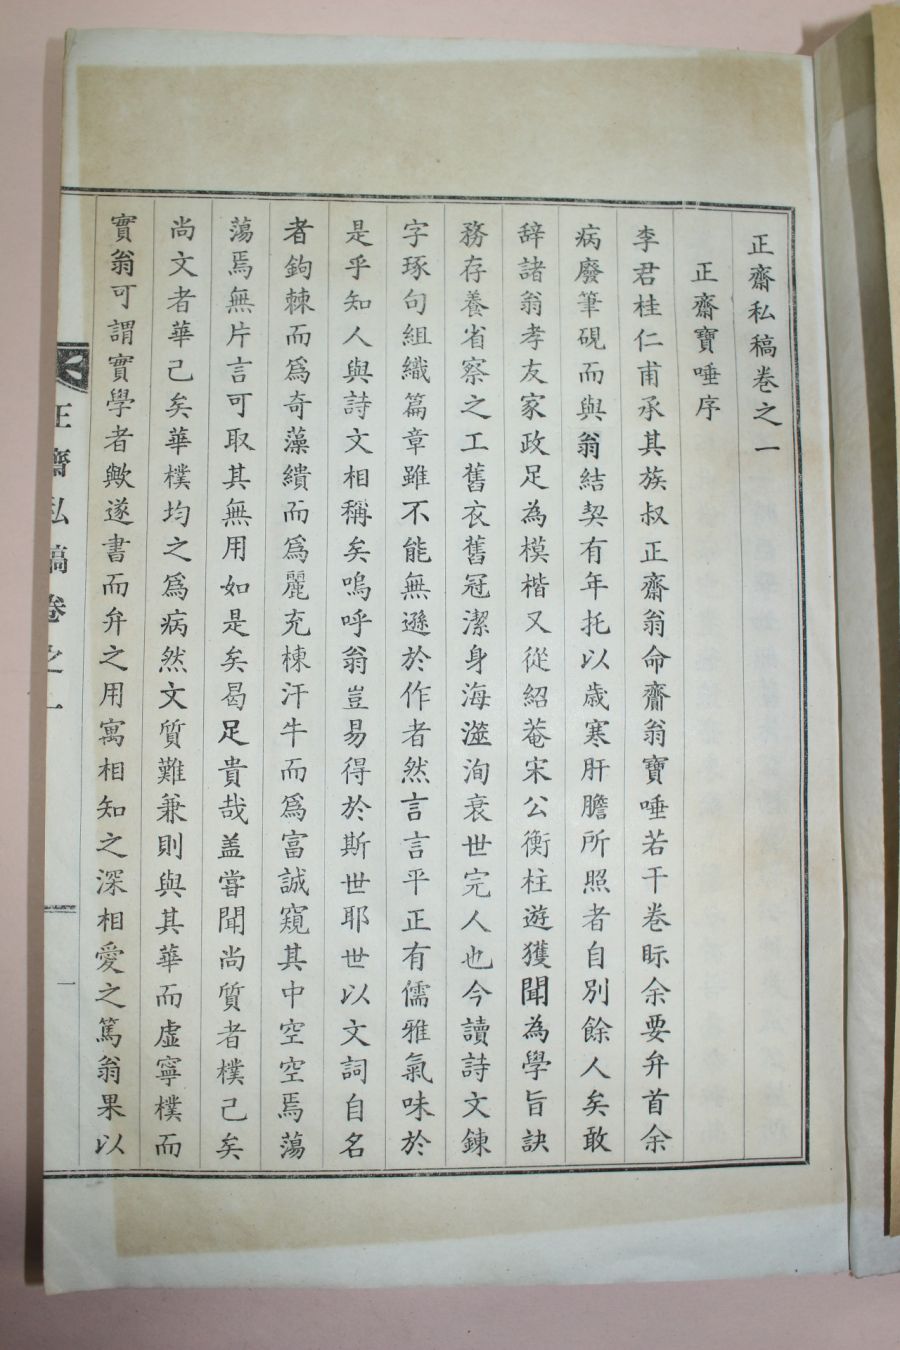 正齋私稿卷之一
正齋寶唾序
李君桂仁甫承其族叔正齋翁命齎翁寶唾若干卷眎余要弁首余
病廢筆硯而與翁結契有年托以歲寒肝膽所照者自別餘人矣敢
辞諸翁孝友家政足為模楷又從紹菴宋公衡柱遊獲聞為學旨訣
務存養省察之工舊衣舊冠潔身海澨洵衰世完人也今讀詩文鍊
字琢句組織篇章雖不能無遜於作者然言言平正有儒雅氣味於
是乎知人與詩文相稱矣嗚呼翁豈易得於斯世耶世以文詞自名
者鉤棘而爲奇藻繢而爲麗充棟汗牛而爲富誠窺其中空空焉蕩
蕩焉無片言可取其無用如是矣曷足貴哉盖嘗聞尚質者樸己矣
尚文者華己矣華樸均之爲病然文質難兼則與其華而虛寧樸而
實翁可謂實學者歟遂書而弁之用寓相知之深相愛之篤翁果以
正齋私稿卷之一
一